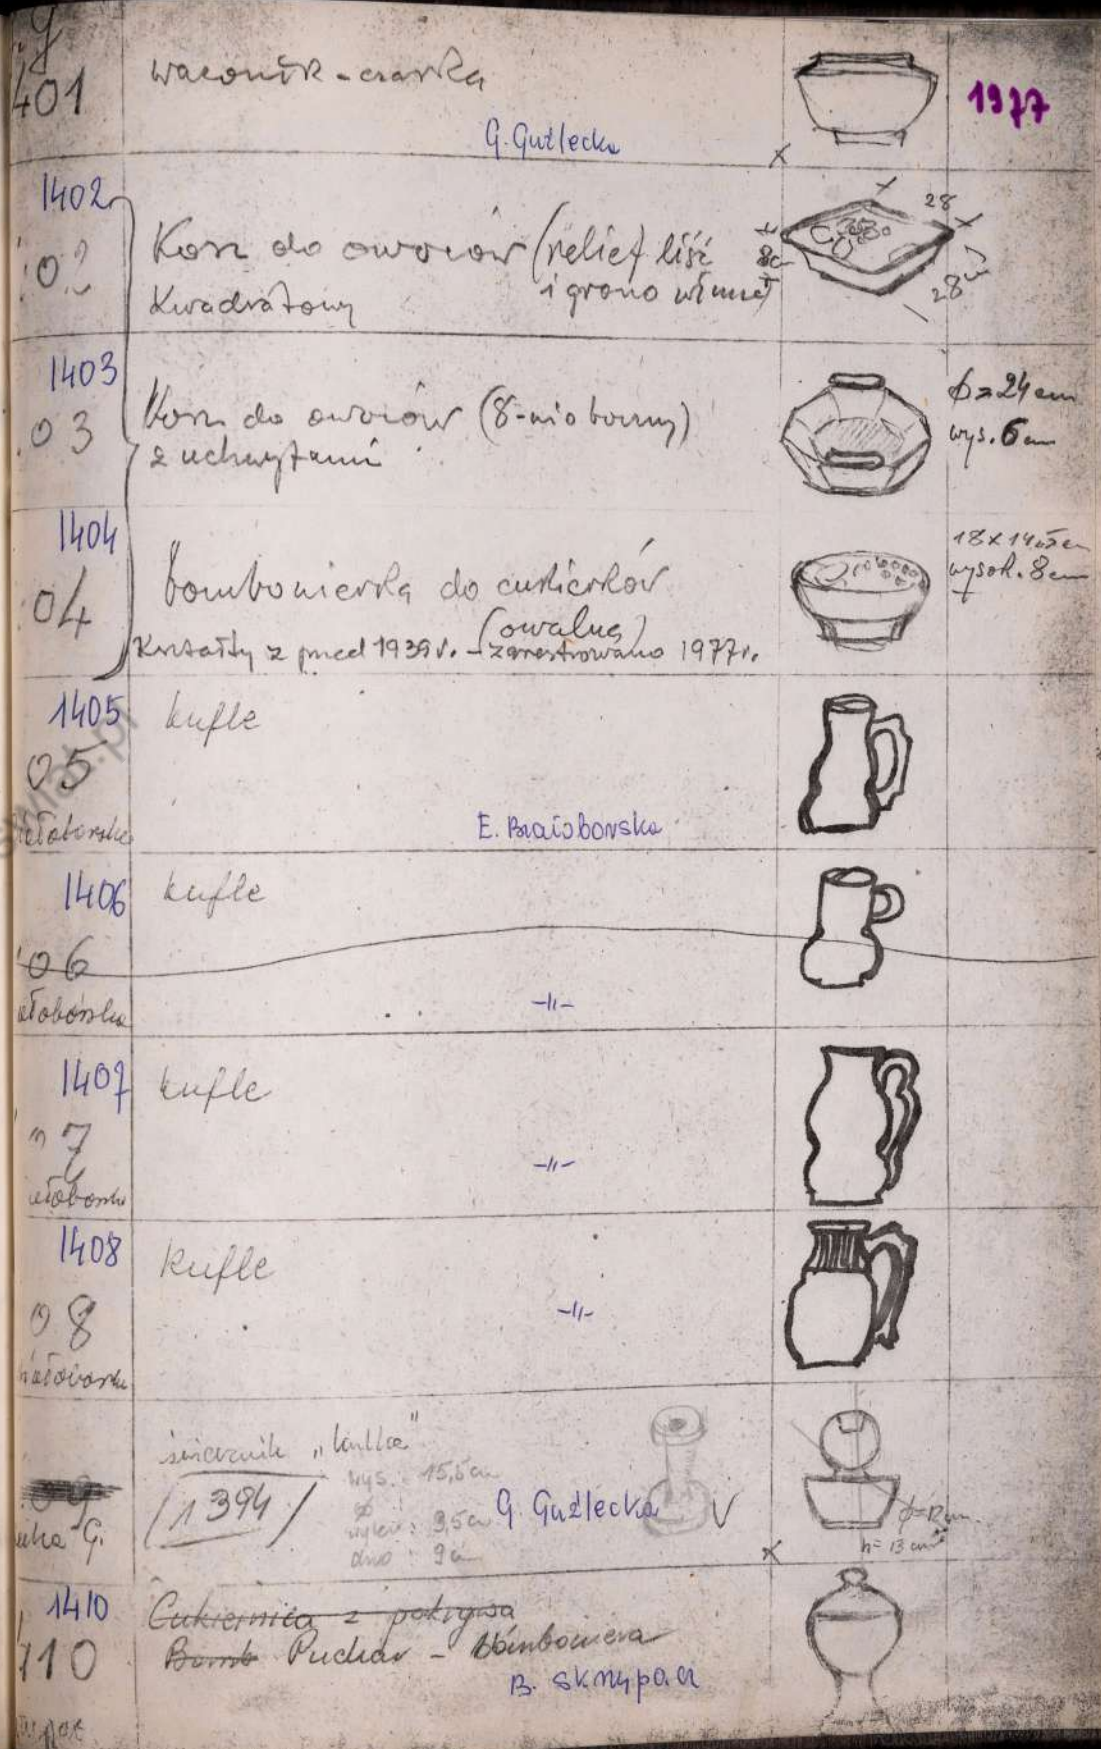 401
wazonik - czarka
1977
G. Guźlecka
1402
02
Kosz do owoców (relief liść
i grono winne)
Kwadratowy
28
8cm
28
1403
03
Kosz do owoców (8-mio boczny)
z uchwytami
ϕ = 24 cm
wys. 6 cm
1404
04
bombonierka do cukierków
(owalna)
Kształty z przed 1939 r. - zarestrowano 1977 r.
wysok. 8 cm
1405
05
kufle
E. Białoborska
1406
06
kufle
-11-
1407
07
kufle
-11-
1408
08
kufle
-11-
świecznik „kulka"
/1394/
wys. 15,5 cm
9,5 cm
dno: 9 cm
G. Guźlecka
V
h= 13 cm
1410
110
Cukiernica z pokrywą
Bomb Puchar - bomboniera
B. Skrzypacz